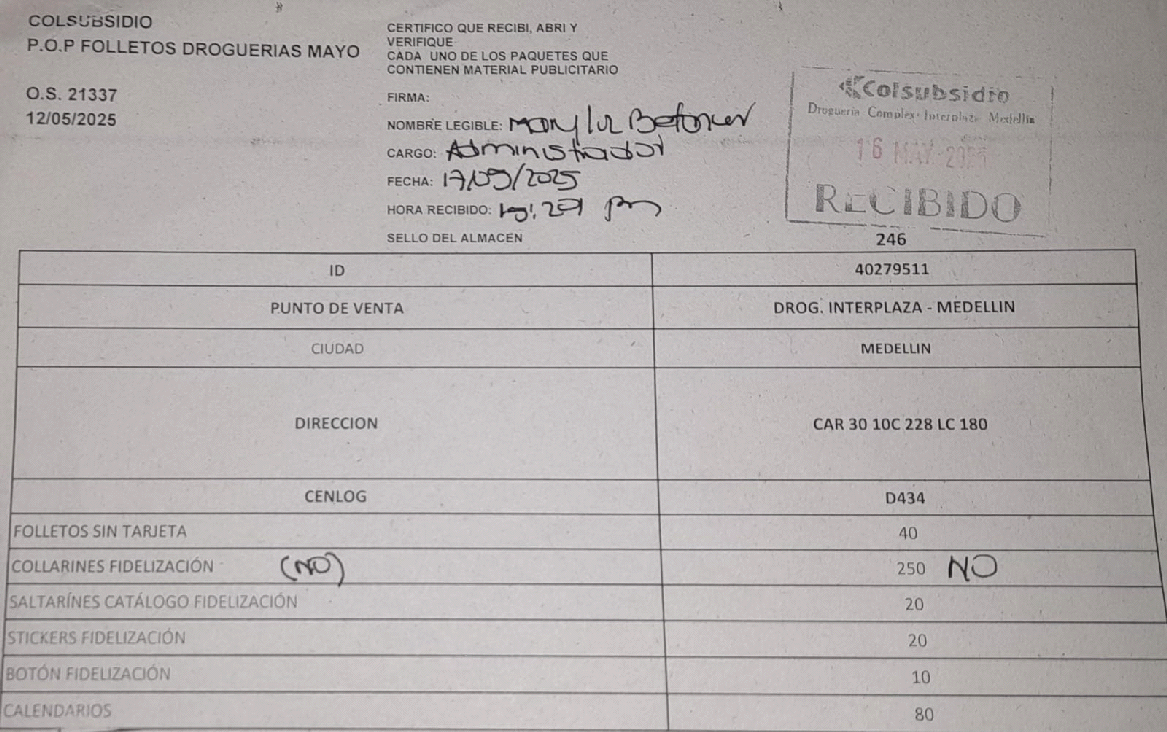 COLSUBSIDIO
P.O.P FOLLETOS DROGUERIAS MAYO
O.S. 21337
12/05/2025
CERTIFICO QUE RECIBI, ABRI Y
VERIFIQUE
CADA UNO DE LOS PAQUETES QUE
CONTIENEN MATERIAL PUBLICITARIO
FIRMA:
NOMBRE LEGIBLE: Mary luz
CARGO: Administrador
FECHA: 17/05/2025
HORA RECIBIDO: pm
SELLO DEL ALMACEN
Colsubsidio
Droguería Complex Interplaza Medellín
16 MAY 2025
RECIBIDO
246
ID 40279511
PUNTO DE VENTA DROG. INTERPLAZA - MEDELLIN
CIUDAD MEDELLIN
DIRECCION CAR 30 10C 228 LC 180
CENLOG D434
FOLLETOS SIN TARJETA 40
COLLARINES FIDELIZACIÓN (NO) 250 NO
SALTARÍNES CATÁLOGO FIDELIZACIÓN 20
STICKERS FIDELIZACIÓN 20
BOTÓN FIDELIZACIÓN 10
CALENDARIOS 80